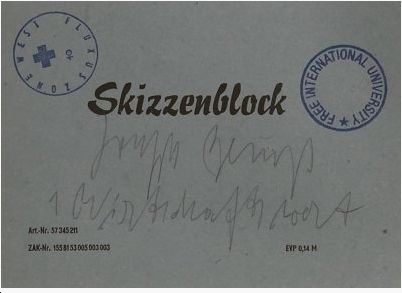 FLUXUS ZONE WEST
40
Skizzenblock
FREE INTERNATIONAL UNIVERSITY ★
Joseph Beuys
1 Wirtschaftswert
Art.-Nr. 57 345 211
ZAK-Nr. 155 81 53 005 003 003
EVP 0,14 M